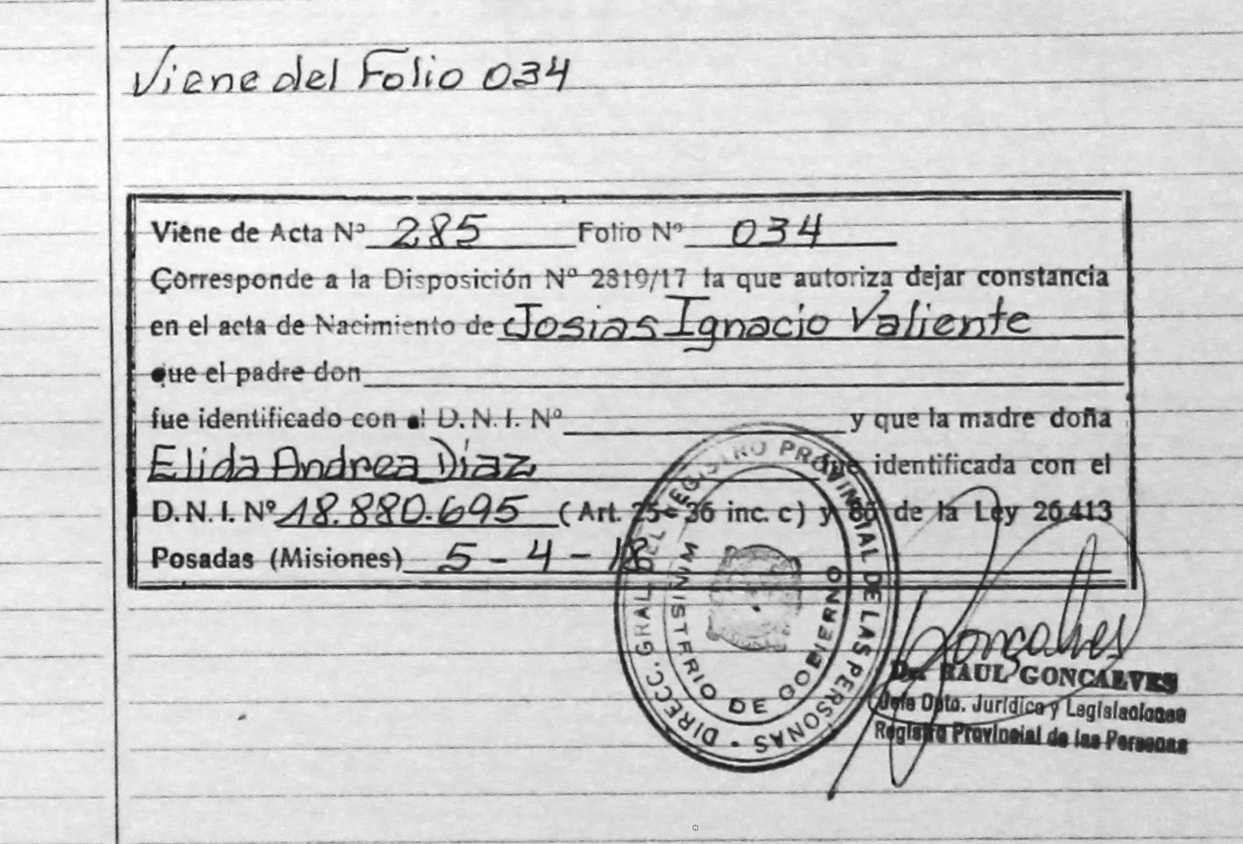 Viene del Folio 034
Viene de Acta Nº 285 Folio Nº 034
Corresponde a la Disposición Nº 2819/17 la que autoriza dejar constancia
en el acta de Nacimiento de Josias Ignacio Valiente
que el padre don
fue identificado con el D. N. I. Nº y que la madre doña
Elida Andrea Diaz fue identificada con el
D. N. I. Nº 18.880.695 (Art. 25 - 36 inc. c) y de la Ley 26413
Posadas (Misiones) 5 - 4 - 18
DIRECC. GRAL DEL REGISTRO PROVINCIAL DE LAS PERSONAS
MINISTERIO DE GOBIERNO
Goncalves
Dr. RAUL GONCALVES
Jefe Dpto. Jurídica y Legislaciones
Registro Provincial de las Personas